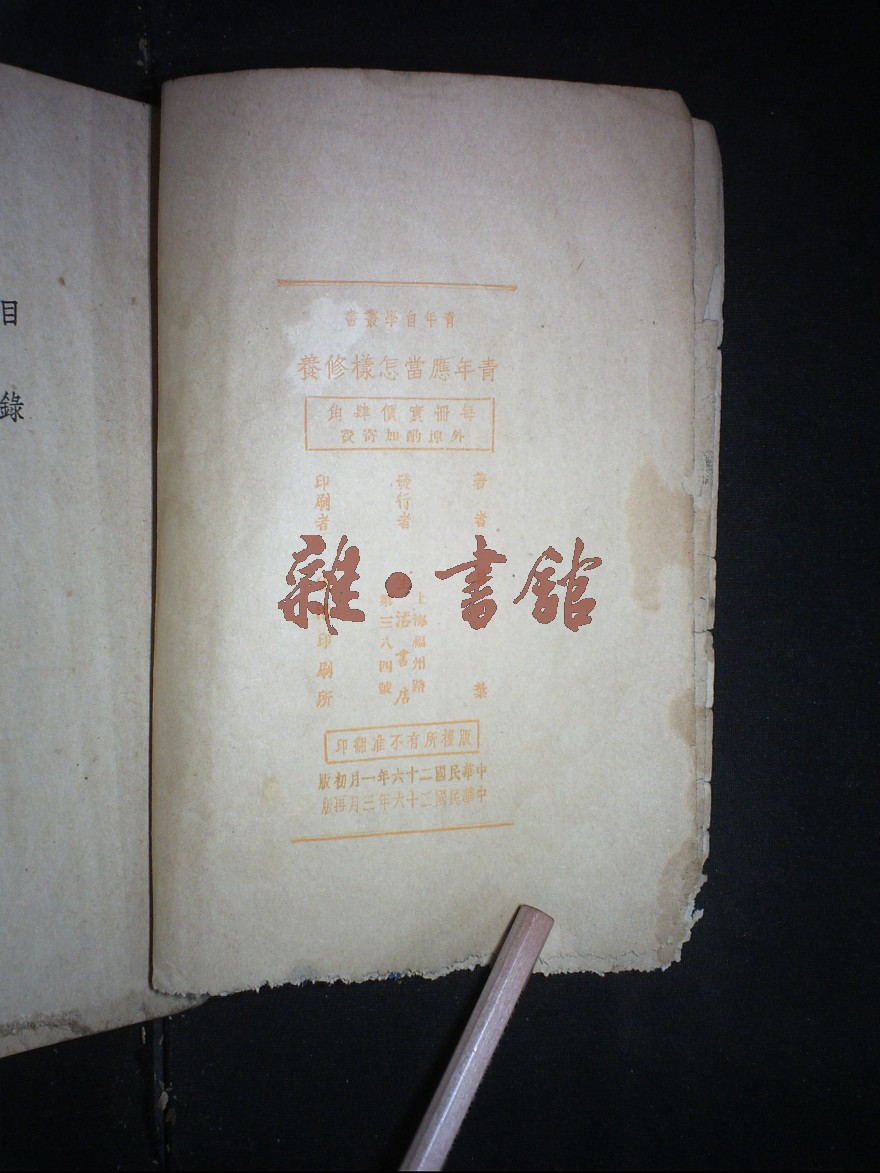 青年自學叢書
青年應當怎樣修養
每冊實價肆角
外埠酌加寄費
著者
發行者
上海福州路
第三八四號
活書店
印刷者
印刷所
版權所有不准翻印
中華民國二十六年一月初版
中華民國二十六年三月再版
目錄
雜·書館